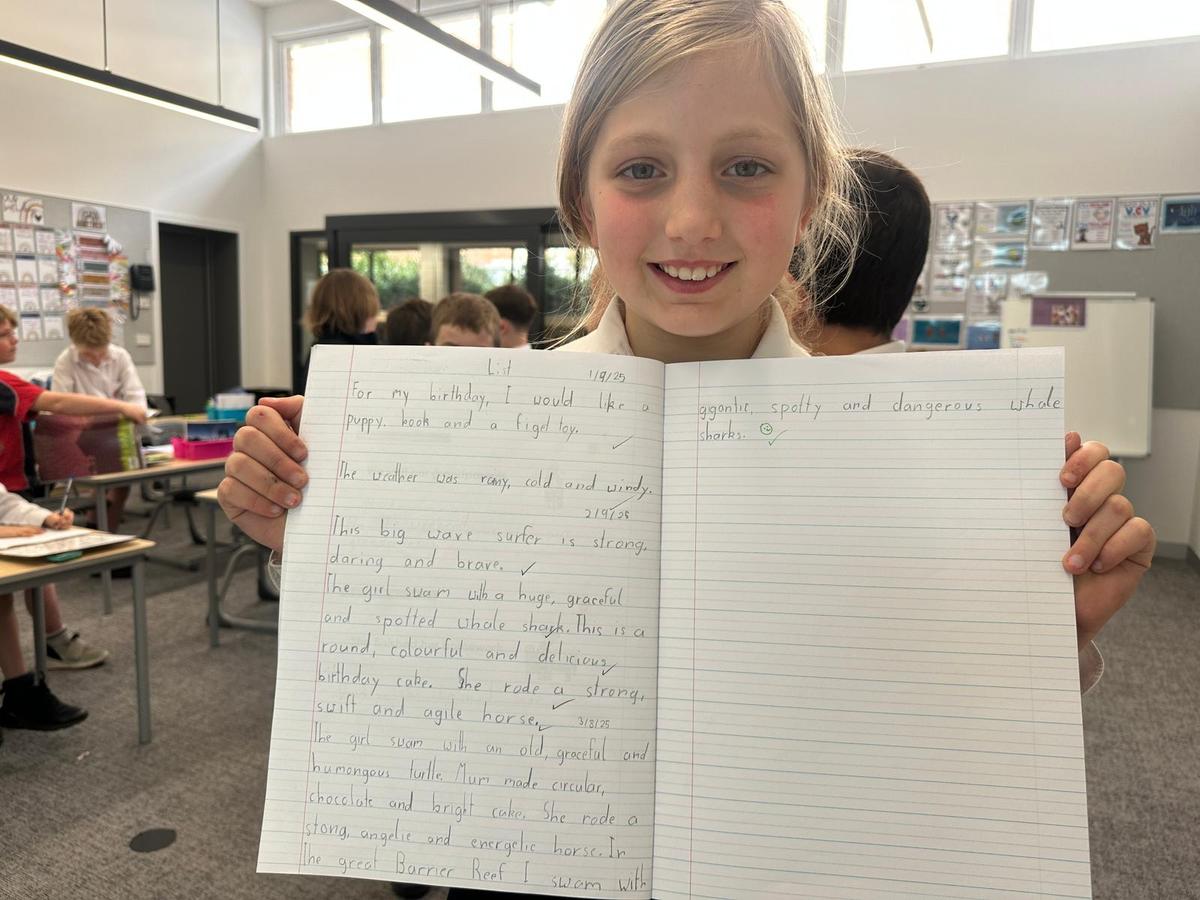 List 1/9/25
For my birthday, I would like a
puppy. book and a figel toy.
The weather was rainy, cold and windy.
2/9/25
This big wave surfer is strong,
daring and brave.
The girl swam with a huge, graceful
and spotted whale shark. This is a
round, colourful and delicious
birthday cake. She rode a strong,
swift and agile horse.
3/8/25
The girl swam with an old, graceful and
humongous turtle. Mum made circular,
chocolate and bright cake. She rode a
stong, angelic and energetic horse. In
The great Barrier Reef I swam with
ggantic, spotty and dangerous whale
sharks.
VCV